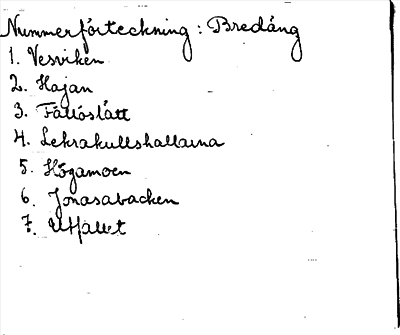 Nummerförteckning : Bredäng
1. Vesviken
2. Hajan
3. Fällöslätt
4. Lekrakullshallarna
5. Högamoen
6. Jonasabacken
7. Utfallet